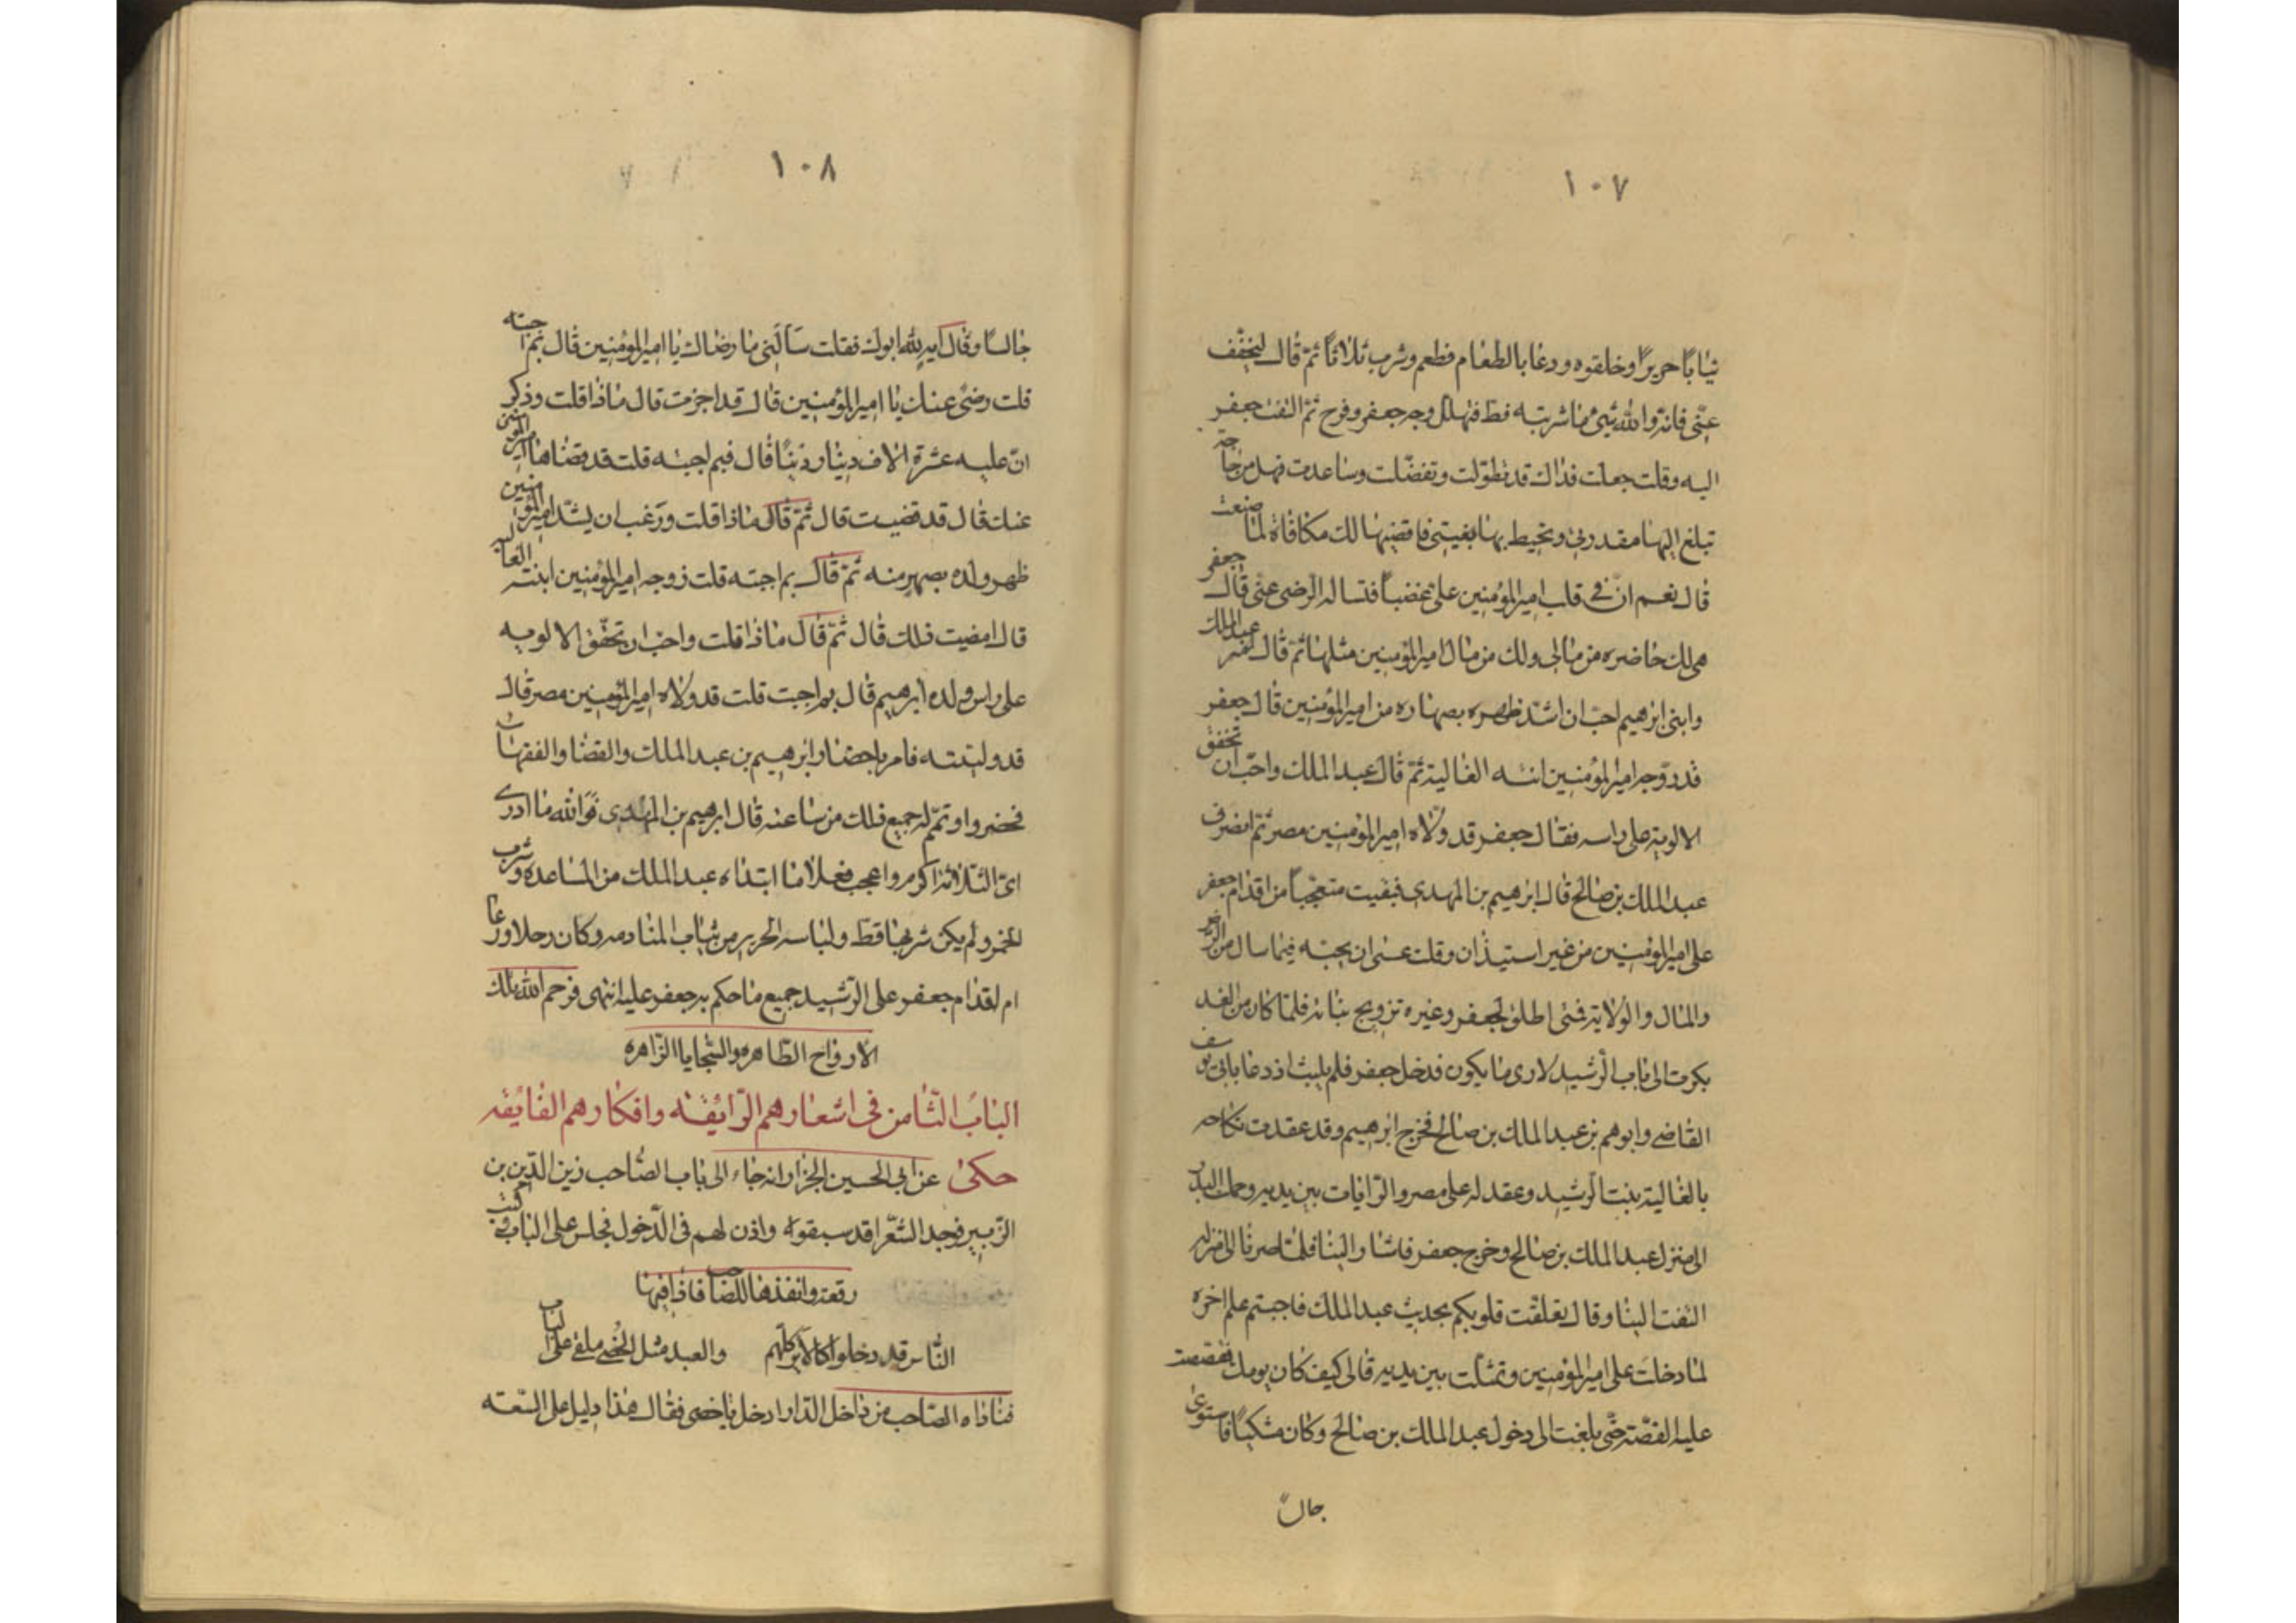 ١٠٧
ثيابًا حريرًا وخلقوه ودعا بالطعام فطعم وشرب ثلاثًا ثمّ قال ليخفّف
عنّى فانه والله شئ ما شربته قط فتهلل وجه جعفر وفرح ثمّ التفت جعفر
اليه وقلت جعلت فداك قد تطوّلت وتفضّلت وساعدت فهل من حاجة
تبلغ اليها مقدرتى وتحيط بها بغيتى فاقضيها لك مكافاة لما صنعت
قال نعم انّ فى قلب امير المؤمنين علىّ غضباً فتساله الرضى عنّى قال جعفر
هى لك حاضره من مالى ولك من مال امير المؤمنين مثلها ثم قال عبد الملك
وابنى ابرهيم احبّ ان اشدّ ظهره بصهاره من امير المؤمنين قال جعفر
قد زوّجه امير المؤمنين ابنته الغالية ثمّ قال عبد الملك واحبّ ان تخفق
الالوية على راسه فقال جعفر قد ولّاه امير المؤمنين مصر ثمّ انصرف
عبد الملك بن صالح قال ابرهيم بن المهدى فبقيت متعجّباً من اقدام جعفر
على امير المؤمنين من غير استيذان وقلت عسى ان يجبه فيما سال من الرضى
والمال والولاية فمتى اطلق لجعفر وغيره تزويج بناته فلمّا كان من الغد
بكرت الى باب الرشيد لارى ما يكون فدخل جعفر فلم يلبث اذ دعا بابى يوسف
القاضى وابرهيم بن عبد الملك بن صالح فخرج ابرهيم وقد عقدت نكاحه
بالغالية بنت الرشيد وعقد له على مصر والرّايات بين يديه وحملت البدر
الى منزل عبد الملك بن صالح وخرج جعفر فاشار الينا فلمّا صرنا الى منزله
التفت الينا وقال تعلقت قلوبكم بحديث عبد الملك فاحببتم علم اخره
لما دخلت على امير المؤمنين وتمثلت بين يديه قال كيف كان يومك فقصصت
عليه القصّة حتّى بلغت الى دخول عبد الملك بن صالح وكان متكيًا فاستوى
جالسًا
١٠٨
جالسًا وقال ايه لله ابوك فقلت سألنى ما رضاك يا امير المؤمنين قال بم اجبته
قلت رضى عنك يا امير المؤمنين قال قد اجزت قال ماذا قلت وذكر
انّ عليه عشرة الاف دينار دينًا قال فبم اجبته قلت قد قضاها امير المؤمنين
عنك قال قد قضيت قال ثمّ قال ماذا قلت ورغب ان يشدّ امير المؤمنين
ظهر ولده بصهر منه ثمّ قال بم اجبته قلت زوجه امير المؤمنين ابنته الغالية
قال امضيت ذلك قال ثمّ قال ماذا قلت واحبّ ان تخفق الالويه
على راس ولده ابرهيم قال بم اجبت قلت قد ولاه امير المؤمنين مصر قال
قد وليته فامر باحضار ابرهيم بن عبد الملك والقضاة والفقهاء
فحضروا وتمّم له جميع ذلك من ساعته قال ابرهيم بن المهدى فوالله ما ادرى
اىّ الثلاثة اكرم واعجب فعلًا ما ابتداه عبد الملك من المساعده وشرب
الخمر ولم يكن شربها قط ولباسه الحرير من ثياب المنادمه وكان رجلا ورعا
ام اقدام جعفر على الرّشيد جميع ما حكم به جعفر عليه انتهى فرحم الله تلك
الارواح الطّاهره والسّجايا الزّاهره
الباب الثّامن فى اشعارهم الرّائقه وافكارهم الفايقه
حكى عن ابى الحسين الجزار انه جاء الى باب الصّاحب زين الدّين بن
الزّبير فوجد الشّعرا قد سبقوه واذن لهم فى الدّخول فجلس على الباب وكتب
رقعة وانفذها للصّاحب فاذا فيها
النّاس قد دخلوا كالاير كلّهم والعبد مثل الخصى ملقى على الباب
فناداه الصّاحب من داخل الدّار ادخل يا خصى فقال هذا دليل على السّعه